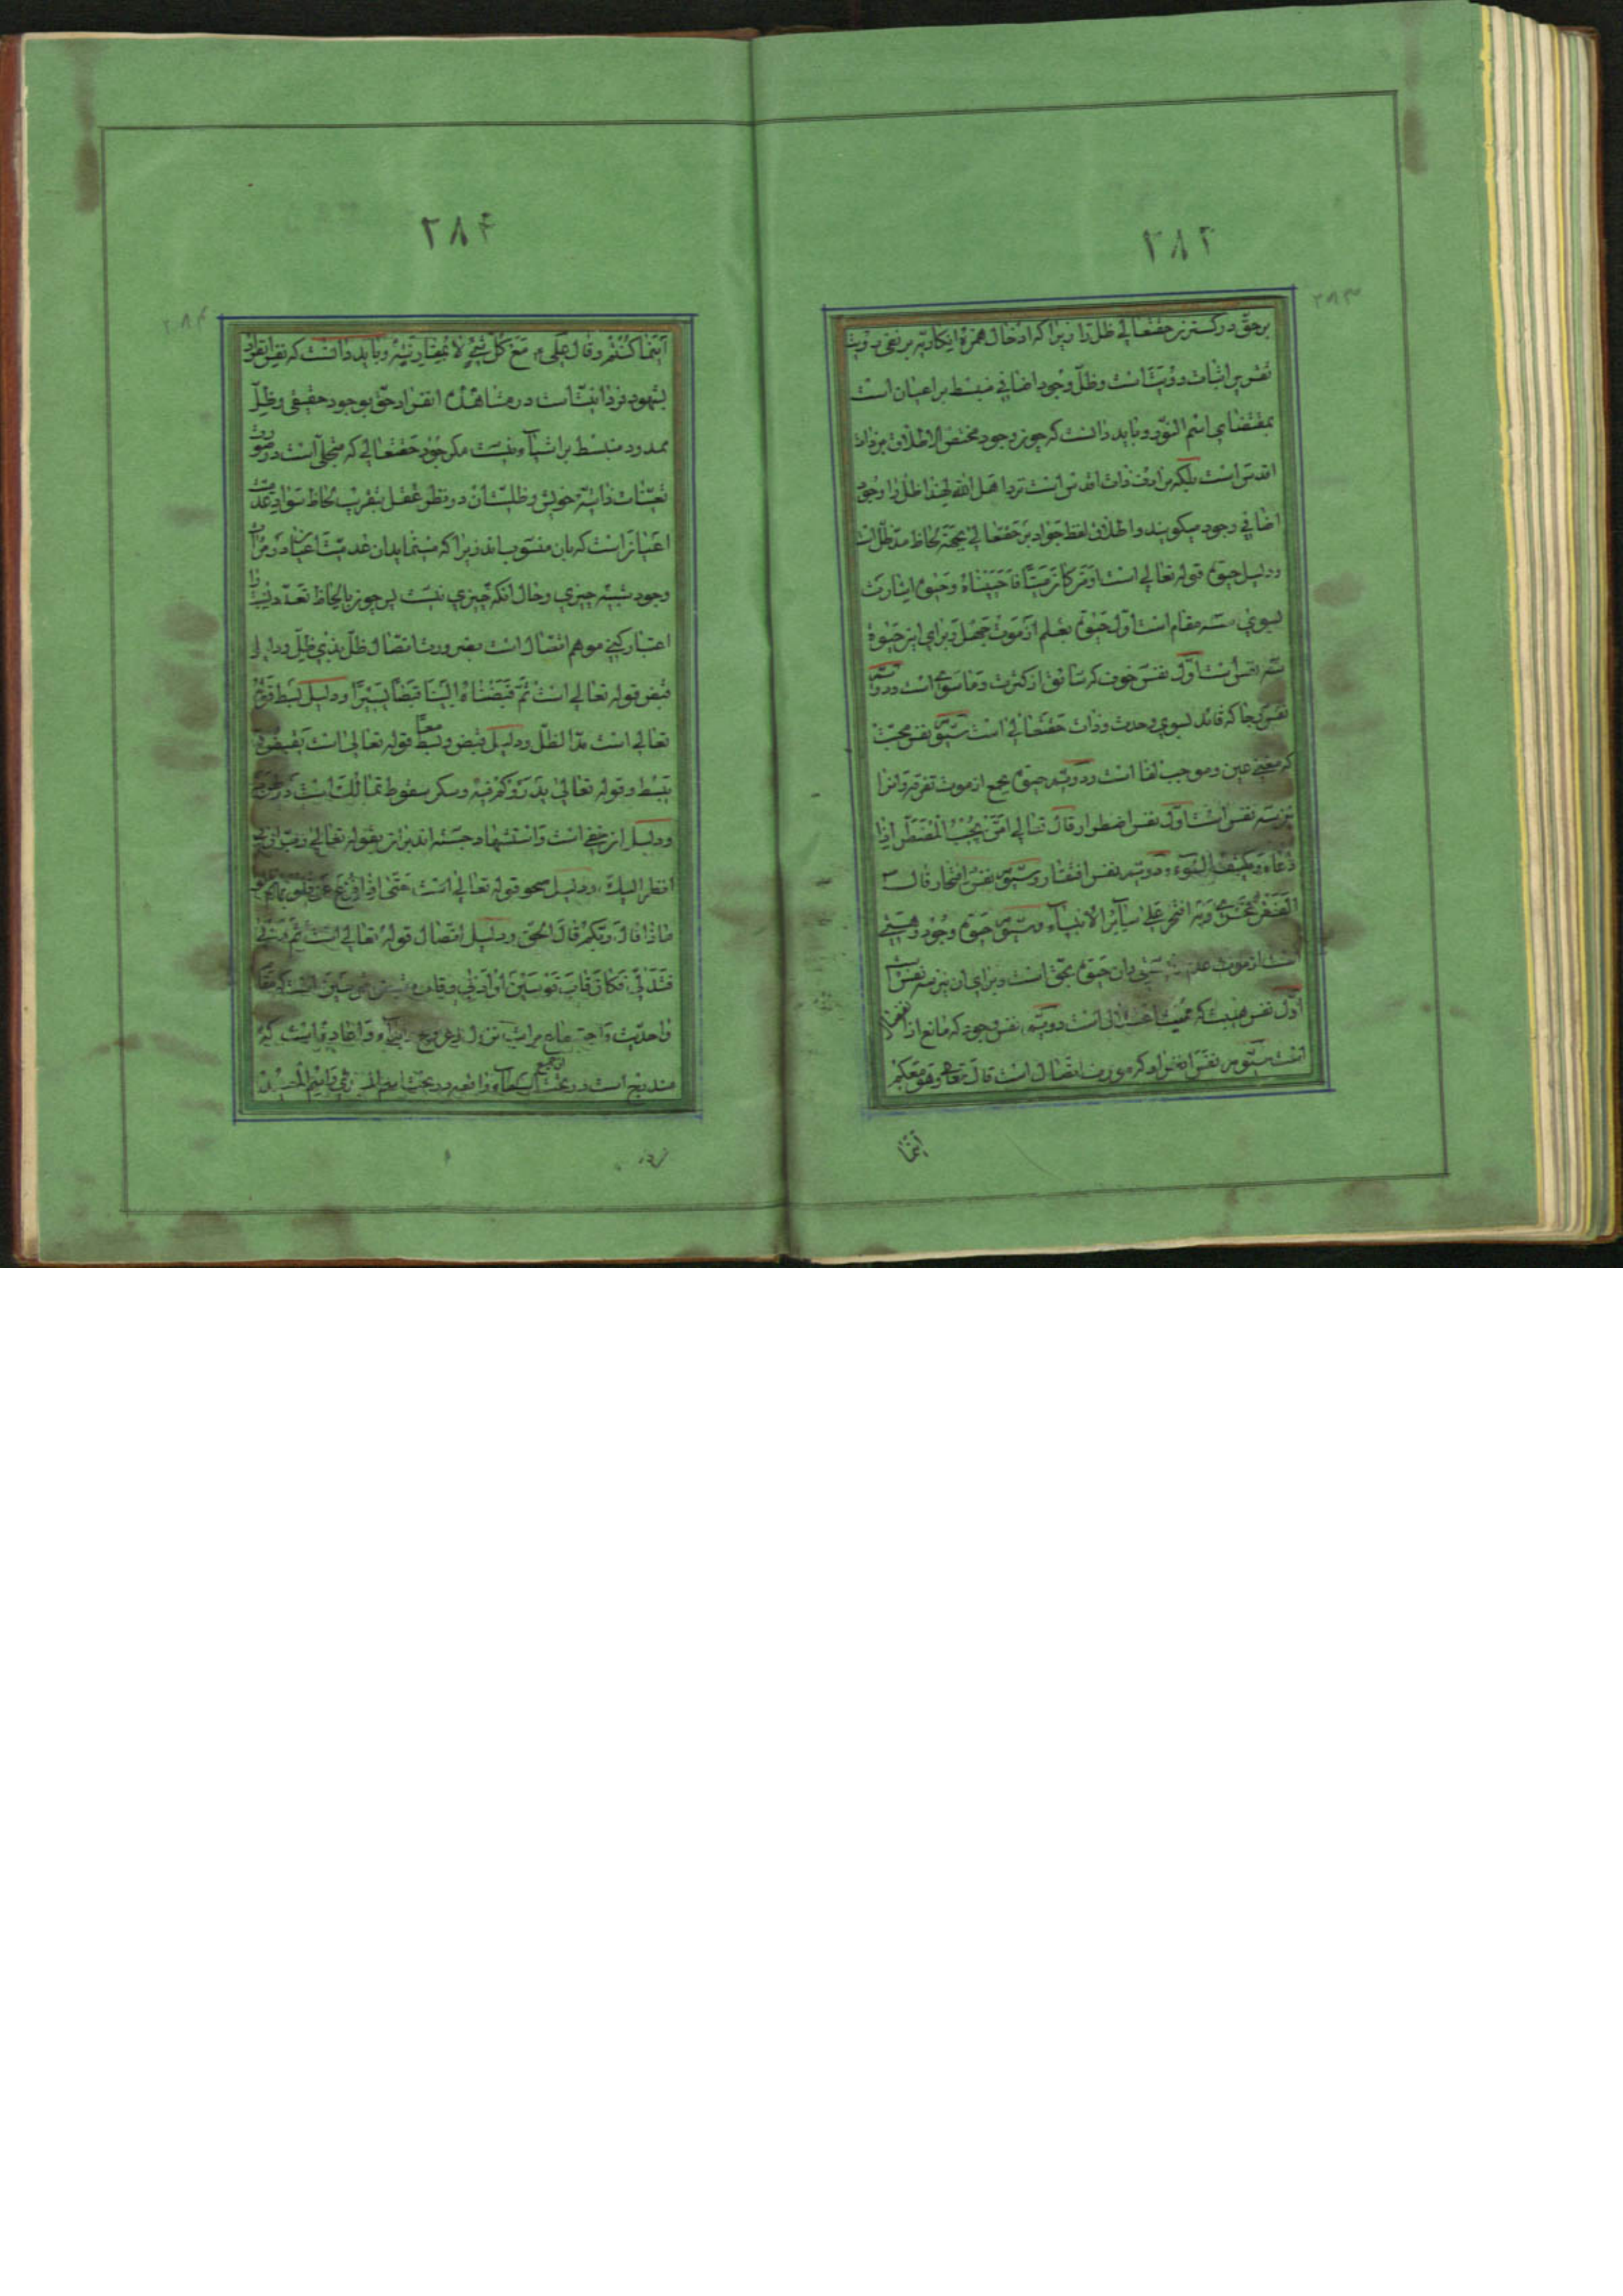 ۲۸۳
۲۸۳
بر حق در کسترن حقتعالی ظل را زیرا که ادخال همزه انکاریه بر نفی رؤیت
نفس بر اثبات رؤیت است وظل وجود اضافی منبسط بر اعیان است
بمقتضای اسم النور و باید دانست که چون وجود محض الاطلاق بر ذات
اقدس است بلکه مرادف ذات اقدس است نزد اهل الله لهذا ظل را وجود
اضافی وجود میکویند واطلاق لفظ جواد بر حقتعالی بجهة لحاظ مد ظل است
ودلیل حیوة قوله تعالی است اومن کان میتا فاحییناه وحیوة اشارت
بسوی سه مقام است اول حیوة بعلم از موت جهل وبرای این حیوة
سه نفس است اول نفس خوف که سائق از کثرت وما سوی است ودویم
نفس رجا که قائد بسوی وحدت وذات حقتعالی است سیوم نفس محبت
که مغنی عین وموجب لقا است ودویم حیوة بجمع از موت تفرقه وانرا
نیز سه نفس است اول نفس اضطرار قال تعالی امن یجیب المضطر اذا
دعاه ویکشف السوء ودویم نفس افتقار وسیوم نفس افتخار قال
الفقر فخری وبه افتخر علی سایر الانبیاء وسیوم حیوة وجود وهستی
است از موت وان حیوة بحق است وبرای ان نیز سه نفس است
اول نفس هیبت که ممیت اعتلال است دویم نفس وجود که مانع از انفصال
است سیوم نفس انفراد که مورث اتصال است قال تعالی وهو معکم
اینما
۲۸۴
۲۸۴
اینما کنتم وقال علی مع کل شیء لا بمقارنة وباید دانست که نفس انفراد
شهود فردانیت است در مشاهده انفراد حق بوجود حقیقی وظل
ممدود منبسط بر اشیاء نیست مکر جود حقتعالی که متجلی است در صورت
تعینات ذاتیه خویش وظلیت ان در نظر عقل بتقریب لحاظ سواد عدمیت
اعیان است که بان منسوب اند زیرا که مینماید ان عدمیت اعیان را در مرآت
وجود شبیه چیزی وحال انکه چیزی نیست پس چون بالحاظ تعدد نسبت را
اعتبار کنی موهم انفصال است بضرورت اتصال ظل بذی ظل ودلیل
قبض قوله تعالی است ثم قبضناه الینا قبضا یسیرا ودلیل بسط قوله
تعالی است مد الظل ودلیل قبض وبسط معا قوله تعالی است یقبض و
یبسط وقوله تعالی یذرؤکم فیه وسکر سقوط تمالک است در طرب
ودلیل از خفی است واستشهاد جسته اند بران بقوله تعالی رب ارنی
انظر الیک ودلیل صحو قوله تعالی است حتی اذا فزع عن قلوبهم
ماذا قال ربکم قال الحق ودلیل اتصال قوله تعالی است ثم دنی
فتدلی فکان قاب قوسین او ادنی
واحدیت
مندرج است در تحت